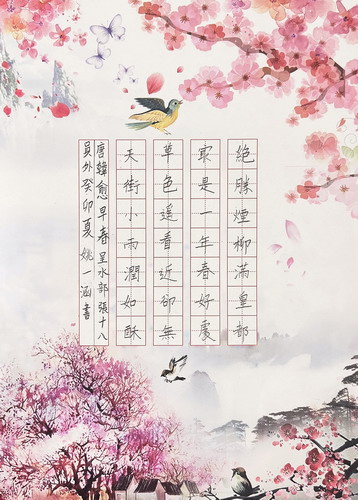 絕勝煙柳滿皇都
最是一年春好處
草色遙看近卻無
天街小雨潤如酥
唐韓愈早春呈水部張十八
員外癸卯夏姚一涵書